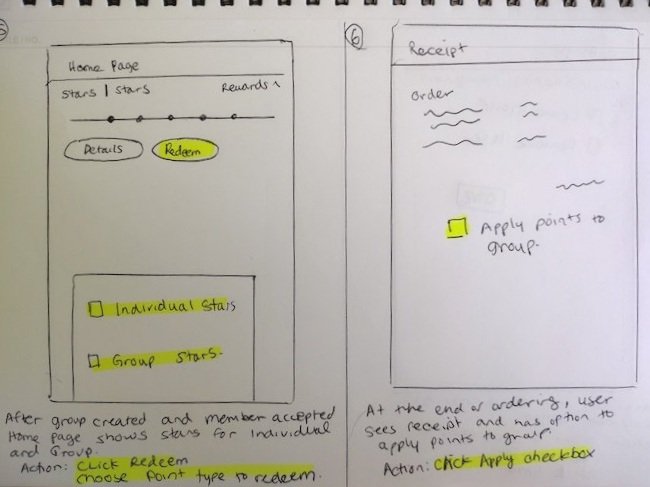 Home Page
Stars | Stars
Rewards ^
Details
Redeem
Individual Stars
Group Stars.
After group created and member accepted
Home page shows stars for Individual
and Group.
Action: Click Redeem
choose point type to redeem.
6
Receipt
Order
Apply points to
group.
At the end of ordering, user
sees receipt and has option to
apply points to group.
Action: Click Apply checkbox